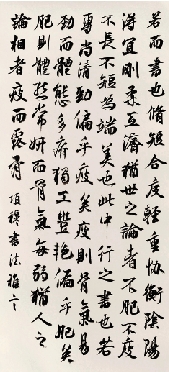 若而書也脩短合度輕重協衡陰陽
得宜剛柔互濟猶世之論者不肥不瘦
不長不短為端美也此中行之書也若
專尚清勁偏乎瘦矣瘦則骨氣易
勁而體態多瘠獨工豐艷偏乎肥矣
肥則體態常妍而骨氣每弱猶人之
論相者瘦而露骨 項穆書法雅言